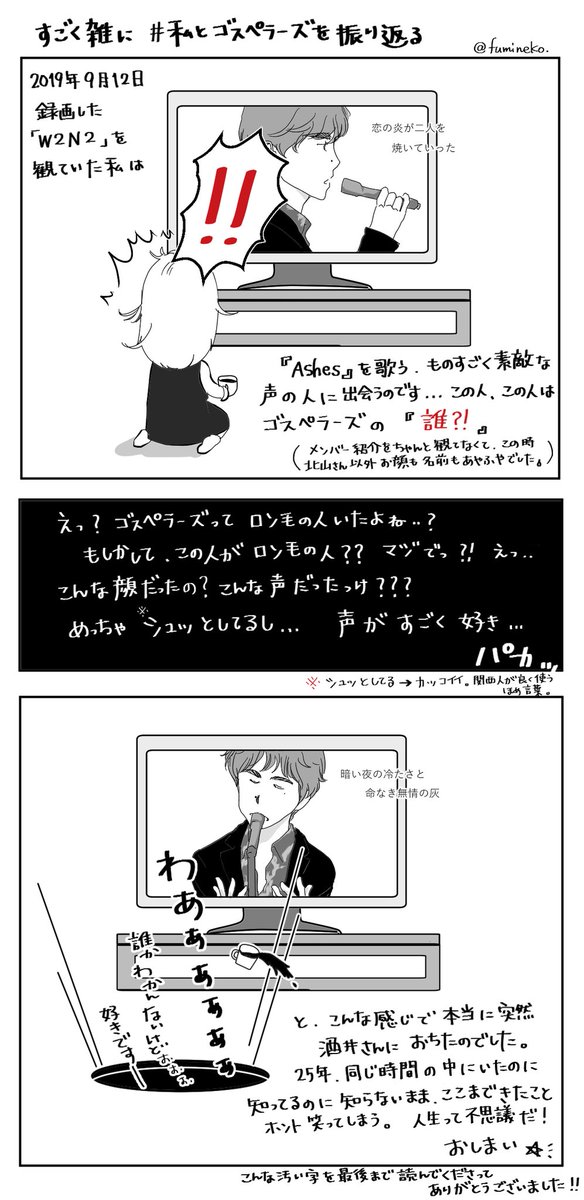 すごく雑に #私とゴスペラーズを振り返る
@fumineko.
2019年9月12日
録画した
「W2N2」を
観ていた私は
恋の炎が二人を
焼いていった
!!
『Ashes』を歌う、ものすごく素敵な
声の人に出会うのです... この人、この人は
ゴスペラーズの『誰?!』
(メンバー紹介をちゃんと観てなくて、この時
北山さん以外お顔も名前もあやふやでした。)
えっ? ゴスペラーズって ロン毛の人いたよね..?
もしかして、この人が ロン毛の人?? マジでっ?! えっ..
こんな顔だったの? こんな声だったっけ???
めっちゃ ※シュッとしてるし... 声が すごく 好き...
パカッ
※ シュッとしてる→カッコイイ。関西人が良く使う
ほめ言葉。
暗い夜の冷たさと
命なき無情の灰
わあぁぁぁぁぁ
誰かわかんないけどぉぉぉ
好きです
と、こんな感じで本当に突然
酒井さんに おちたのでした。
25年、同じ時間の中にいたのに
知ってるのに知らないまま、ここまできたこと
ホント笑ってしまう。 人生って不思議だ!
おしまい☆
こんな汚い字を最後まで読んでくださって
ありがとうございました!!